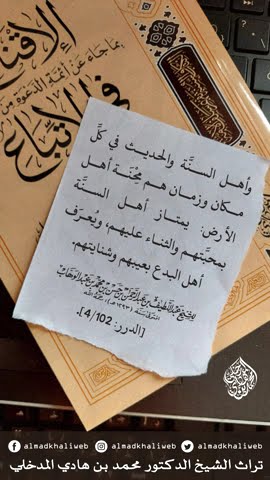 الإقناع
بما جاء عن أئمة الدعوة من
في الاتباع
وأهل السنَّة والحديث في كلِّ
مكان وزمان هم مِحْنة أهل
الأرض: يمتاز أهل السنَّة
بمحبَّتهم والثناء عليهم، ويُعرَف
أهل البدع بعيبهم وشنايتهم.
الشيخ عبد اللطيف بن عبد الرحمن بن حسن بن محمد بن عبد الوهاب
[الدرر: 4/102].
almadkhaliweb
almadkhaliweb
almadkhaliweb
تراث الشيخ الدكتور محمد بن هادي المدخلي